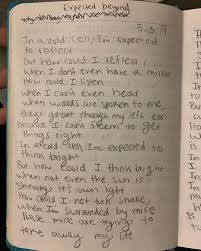 Expected beyond
5.15.19
In a cold cell, I'm expected
to reflect
But how could I reflect
when I don't even have a mirror
How could I listen
when I can't even hear
when words are spoken to me,
they go out through my left ear
because I can't seem to get
things right
In a cold cell, I'm expected to
think bright
But how could I think bright
when not even the sun is
shining it's own light
How could I not talk snake,
when I'm surrounded by mice
These mice are trying to
take away my life